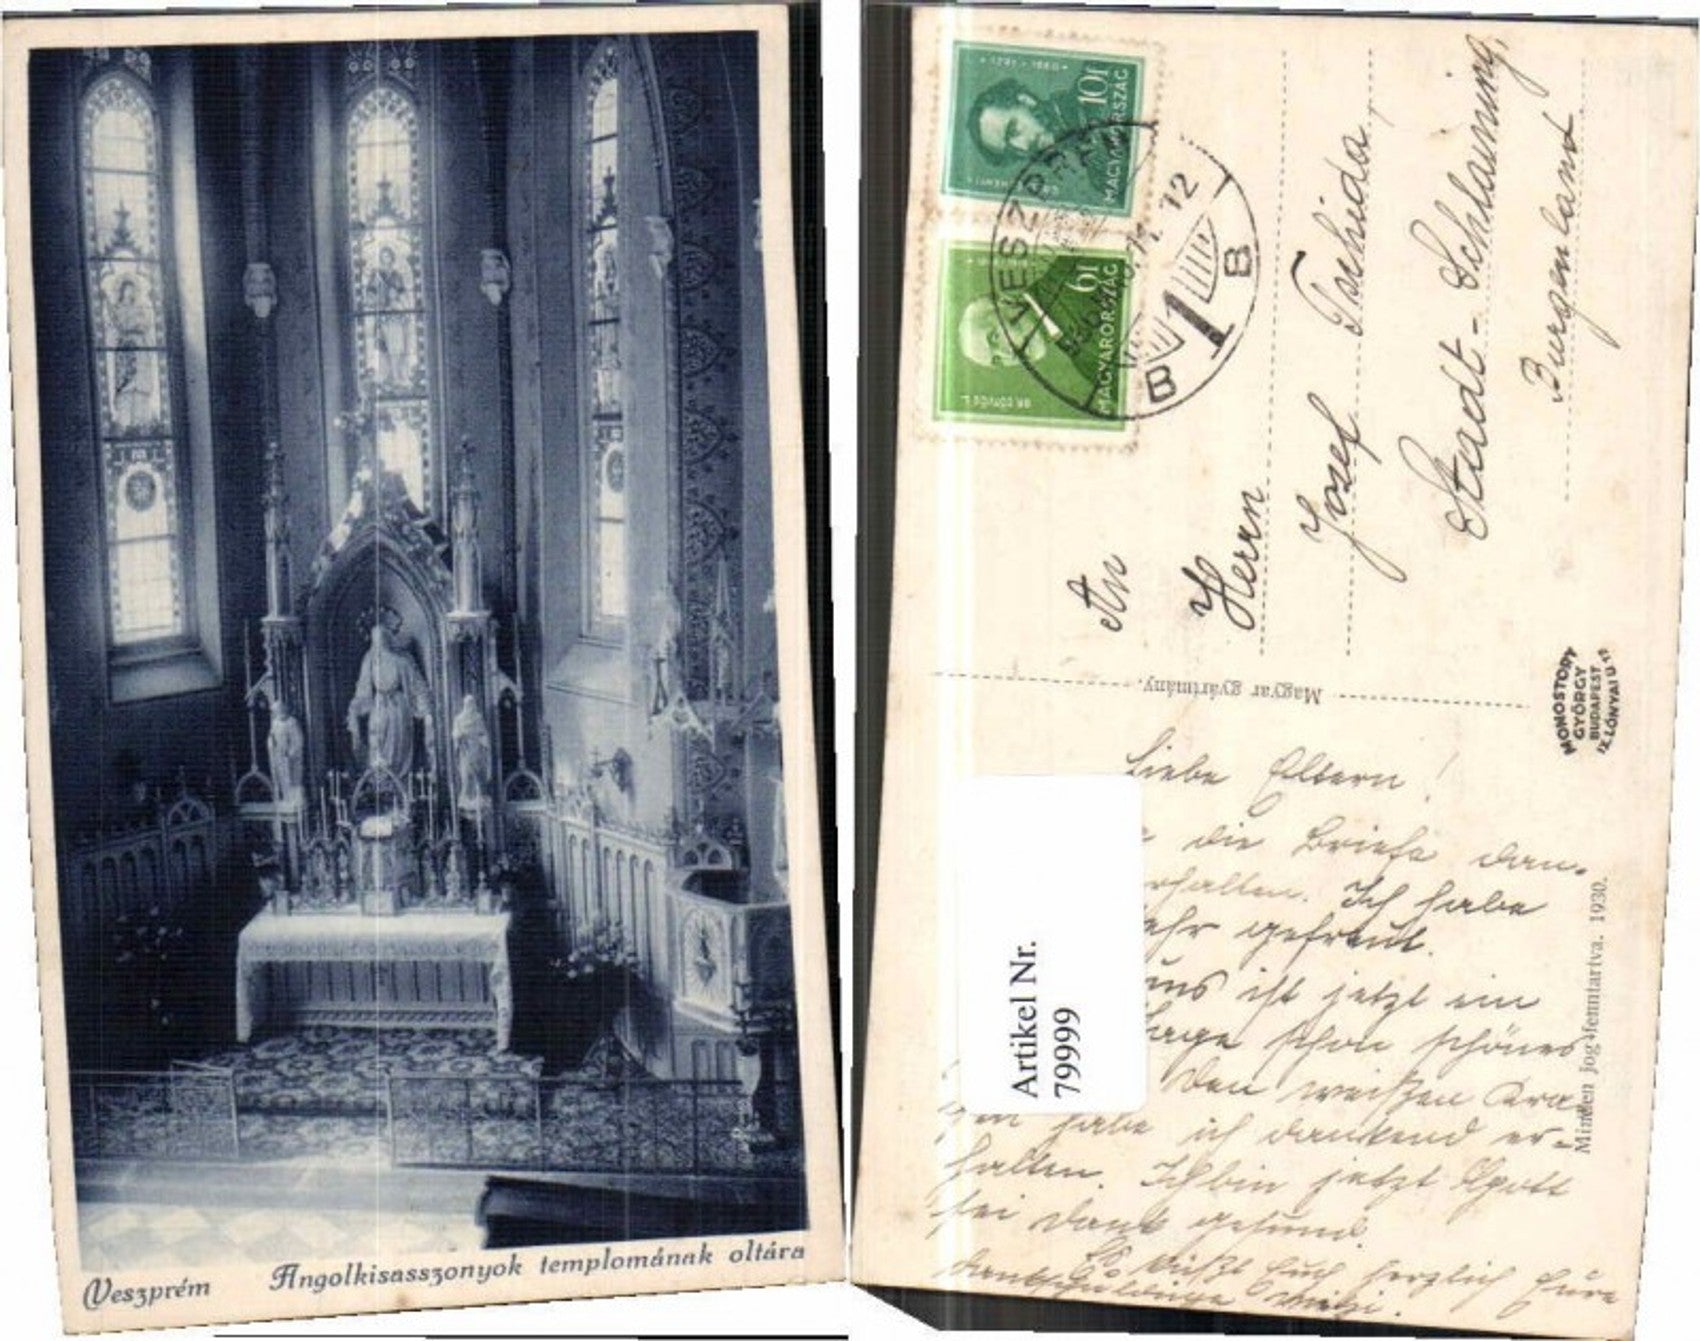 Veszprém Angolkisasszonyok templomának oltára
10f
MAGYARORSZÁG
6f
MAGYARORSZÁG
VESZPRÉM
12
1
B B
An
Herrn
Josef Tschida,
Stadt-Schlaining,
Burgenland.
Magyar gyártmány.
MONOSTORY
GYÖRGY
BUDAPEST
IX. LÓNYAI U 17
Minden jog fenntartva. 1930.
Artikel Nr.
79999
Liebe Eltern!
die Briefe dan-
erhalten. Ich habe
sehr gefreut.
uns ist jetzt ein
Tage schon schönes
Den weißen Kra-
gen habe ich dankend er-
halten. Ich bin jetzt Gott
sei Dank gesund.
Es küßt Euch herzlich Eure
dankschuldige Mitzi.